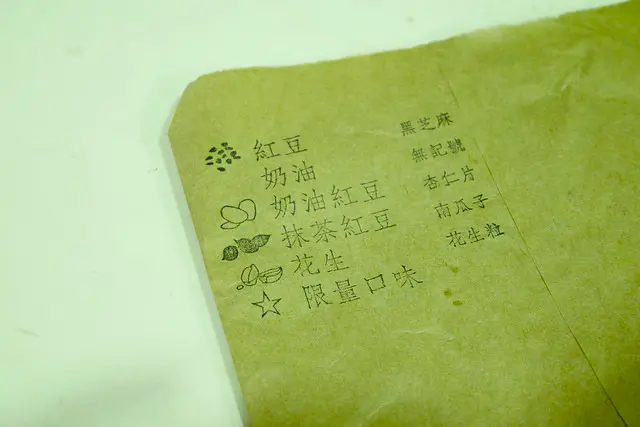 紅豆 黑芝麻
奶油 無記號
奶油紅豆 杏仁片
抹茶紅豆 南瓜子
花生 花生粒
限量口味